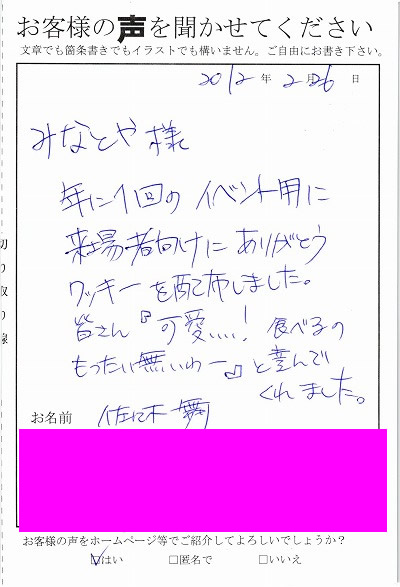 お客様の声を聞かせてください
文章でも箇条書きでもイラストでも構いません。ご自由にお書き下さい。
2012年 2月26日
みなとや 様
年に1回の イベント用に
来場者向けに ありがとう
クッキーを配布しました。
皆さん『可愛いぃ! 食べるの
もったい無いわー』と喜んで
くれました。
切り取り線
お名前 佐々木 舞
お客様の声をホームページ等でご紹介してよろしいでしょうか?
☑はい □匿名で □いいえ